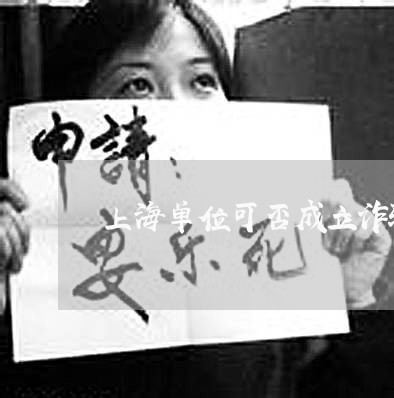 申請：
上海单位可否成立诈
安乐死